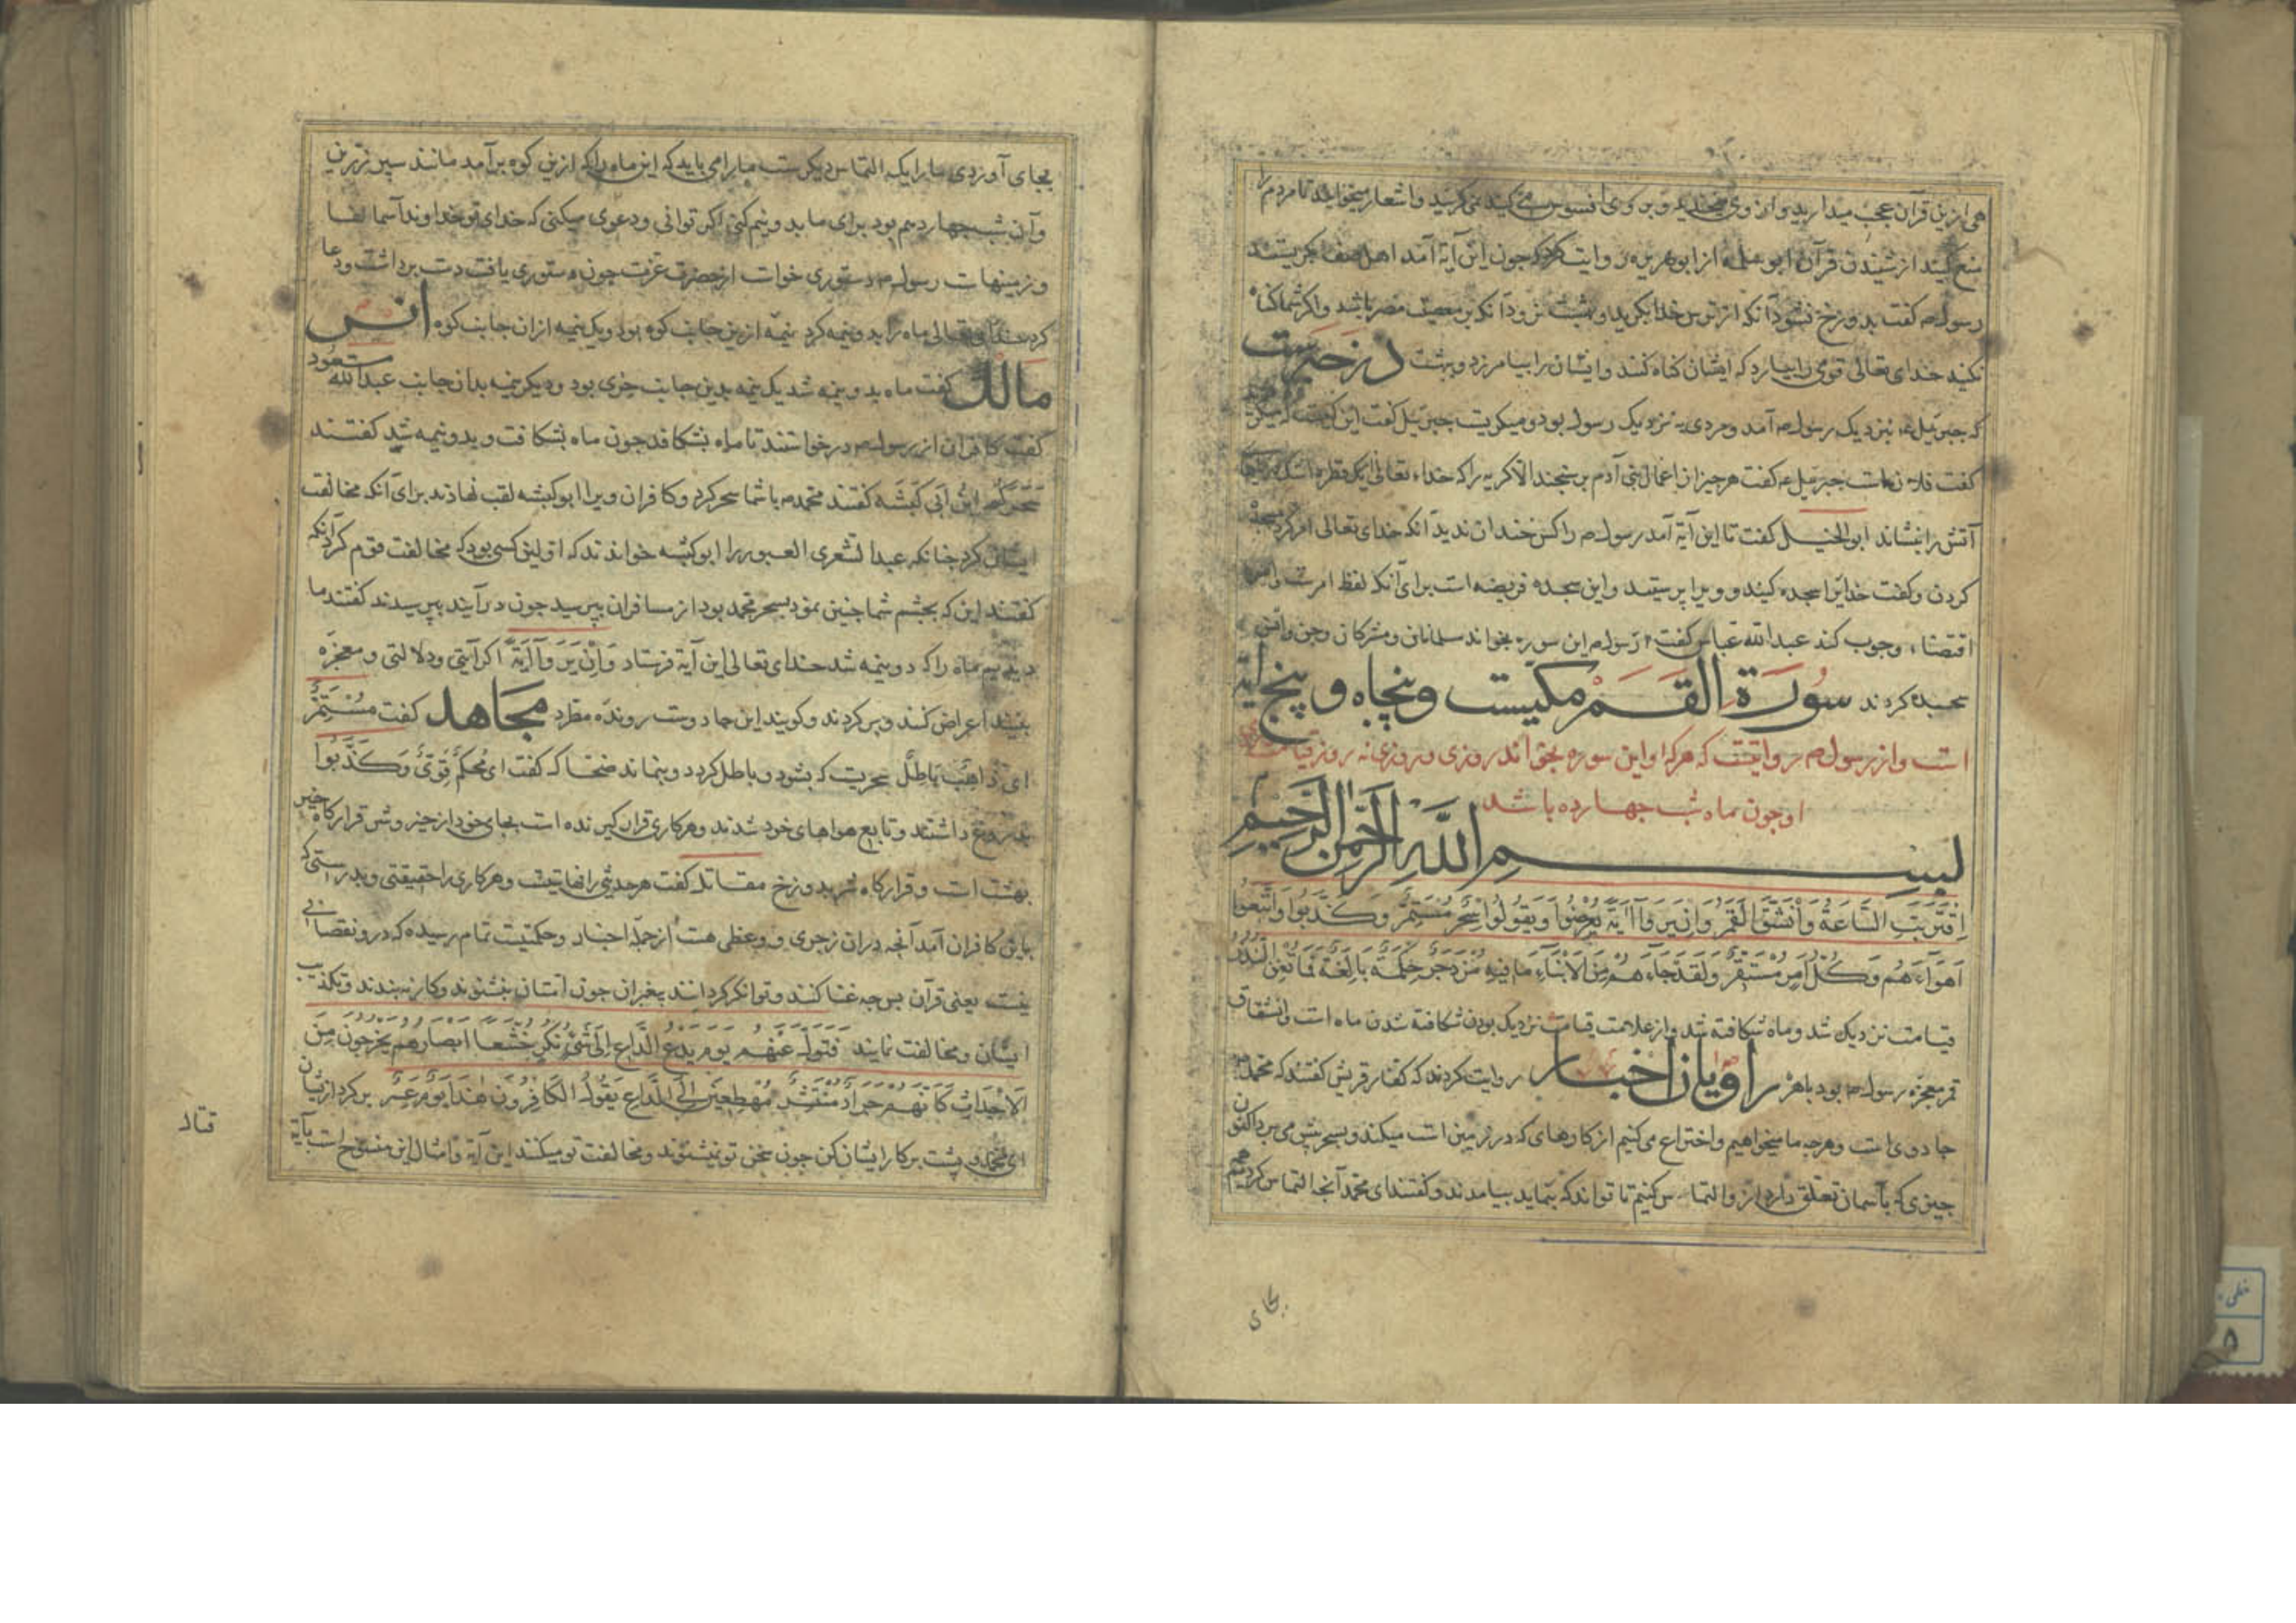 هی ازین قرآن عجب میدارید و از وی میخندید و بر وی افسوس می کنید نمی کریید و اشعار میخوانید تا مردم را
منع کنید از شنیدن قرآن ابو سلمه از ابو هریره روایت کرد که جون این آیة آمد اهل صفه بکریستند
رسول م کفت بدوزخ نشود آنکه از ترس خدا بکرید و ببهشت نرود آنکه بر معصیت مصر باشد و اکر شما کناه
نکنید خدای تعالی قومی را بیارد که ایشان کناه کنند و ایشان را بیامرزد و ببهشت در خبرست
که جبریل ع بنزدیک رسول م آمد و مردی به نزدیک رسول بود و میکریست جبریل کفت این کیست که میکرید
کفت فلان است جبریل ع کفت هر جیز از اعمال بنی آدم بر سنجند الا کریه را که خداء تعالی بیک قطره اشک دریاها
آتش را بنشاند ابو الخلیل کفت تا این آیة آمد رسول م را کس خندان ندید آنکه خدای تعالی امر کرد بسجده
کردن و کفت خدایرا سجده کنید و ویرا پرستید و این سجده فریضه است برای آنکه لفظ امرست و امر
اقتضاء وجوب کند عبد الله عباس کفت رسول م این سوره بخواند مسلمانان و مشرکان و جن و انس
سجده کردند سُورَة القَمَر مکیست و پنجاه و پنج آیة
است و از رسول م روایتست که هر که او این سوره بخواند روزی و روزی نه روز قیامت روی
او جون ماه شب جهارده باشد
بِسْمِ اللَّهِ الرَّحْمٰنِ الرَّحِيمِ
اِقْتَرَبَتِ السَّاعَةُ وَانْشَقَّ الْقَمَرُ وَاِنْ يَرَوْا آيَةً يُعْرِضُوا وَيَقُولُوا سِحْرٌ مُسْتَمِرٌّ وَكَذَّبُوا وَاتَّبَعُوا
اَهْوَآءَهُمْ وَكُلُّ اَمْرٍ مُسْتَقِرٌّ وَلَقَدْ جَآءَهُمْ مِنَ الْاَنْبَآءِ مَا فِيهِ مُزْدَجَرٌ حِكْمَةٌ بَالِغَةٌ فَمَا تُغْنِ النُّذُرُ
قیامت نزدیک شد و ماه شکافته شد و از علامت قیامت نزدیک بودن شکافته شدن ماه است و انشقاق
قمر معجزه رسول م بود باهر راویان اخبار روایت کردند که کفار قریش کفتند که محمد م
جادوی است و هرجه ما میخواهیم و اختراع می کنیم از کارهای که در زمین است میکند و بسحر پیش می برد اکنون
جیزی که بآسمان تعلق دارد از و التماس کنیم تا تواند که بنماید بیامدند و کفتند ای محمد آنجه التماس کردیم همه
بجای
بجای آوردی ما را یک التماس دیکرست ما را می باید که این ماه را که ازین کوه برآمد مانند سپر زرین
و آن شب جهاردهم بود برای ما بدو نیم کنی اکر توانی و دعوی میکنی که خدای تو خداوند آسمانها
و زمینهاست رسول م دستوری خواست از حضرت عزت جون دستوری یافت دست برداشت و دعا
کرد خدای تعالی ماه را بدو نیمه کرد نیمه ازین جانب کوه بود و یک نیمه ازان جانب کوه انس
مالک کفت ماه بدو نیمه شد یک نیمه بدین جانب حری بود و دیکر نیمه بدان جانب عبد الله مسعود
کفت کافران از رسول م درخواستند تا ماه بشکافد جون ماه بشکافت و بدو نیمه شد کفتند
سَحَرَكُمْ ابْنُ اَبِی کَبْشَه کفتند محمد م با شما سحر کرد و کافران ویرا ابو کبشه لقب نهادند برای آنکه مخالفت
ایشان کرد جنانکه عبد الشعری العبور را ابو کبشه خواندند که او لین کسی بود که مخالفت قوم کرد آنکه
کفتند این که بجشم شما جنین نمود بسحر محمد بود از مسافران بپرسید جون درآیند بپرسیدند کفتند ما
دیدیم ماه را که دو نیمه شد خدای تعالی این آیة فرستاد وَاِنْ يَرَوْا آيَةً اکر آیتی و دلالتی و معجزه
بینند اعراض کنند و برکردند و کویند این جادوست رونده مطرد مجاهد کفت مُسْتَمِرٌّ
ای ذَاهِبٌ بَاطِلٌ سحریست که بشود و باطل کردد و بنماند ضحاک کفت ای مُحْكَمٌ قَوِیٌّ وَكَذَّبُوا
بدروغ داشتند و تابع هواهای خود شدند و هر کاری قرار کیرنده است بجای خود از خیر و شر قرارکاه خیر
بهشت است و قرارکاه شر بدوزخ مقاتل کفت هر حدیثی را نهایتیست و هر کاری را حقیقتی و بدرستی که
باین کافران آمد آنجه دران زجری و وعظی هست از جمله اخبار و حکمتیست تمام رسیده که درو نقصانی
نیست یعنی قرآن بر جه غنا کنند و توانکر کردانند پیغمبران جون امتان بنشنوند و کار نه بندند و تکذیب
ایشان و مخالفت نمایند فَتَوَلَّ عَنْهُمْ يَوْمَ يَدْعُ الدَّاعِ اِلَى شَيْءٍ نُكُرٍ خُشَّعًا اَبْصَارُهُمْ يَخْرُجُونَ مِنَ
الْاَجْدَاثِ كَاَنَّهُمْ جَرَادٌ مُنْتَشِرٌ مُهْطِعِينَ اِلَى الدَّاعِ يَقُولُ الْكَافِرُونَ هٰذَا يَوْمٌ عَسِرٌ برکرد ازیشان
ای محمد و پشت بر کار ایشان کن جون سخن تو نشنوند و مخالفت تو میکنند این آیة و امثال این منسوخ است بآیة
قتال